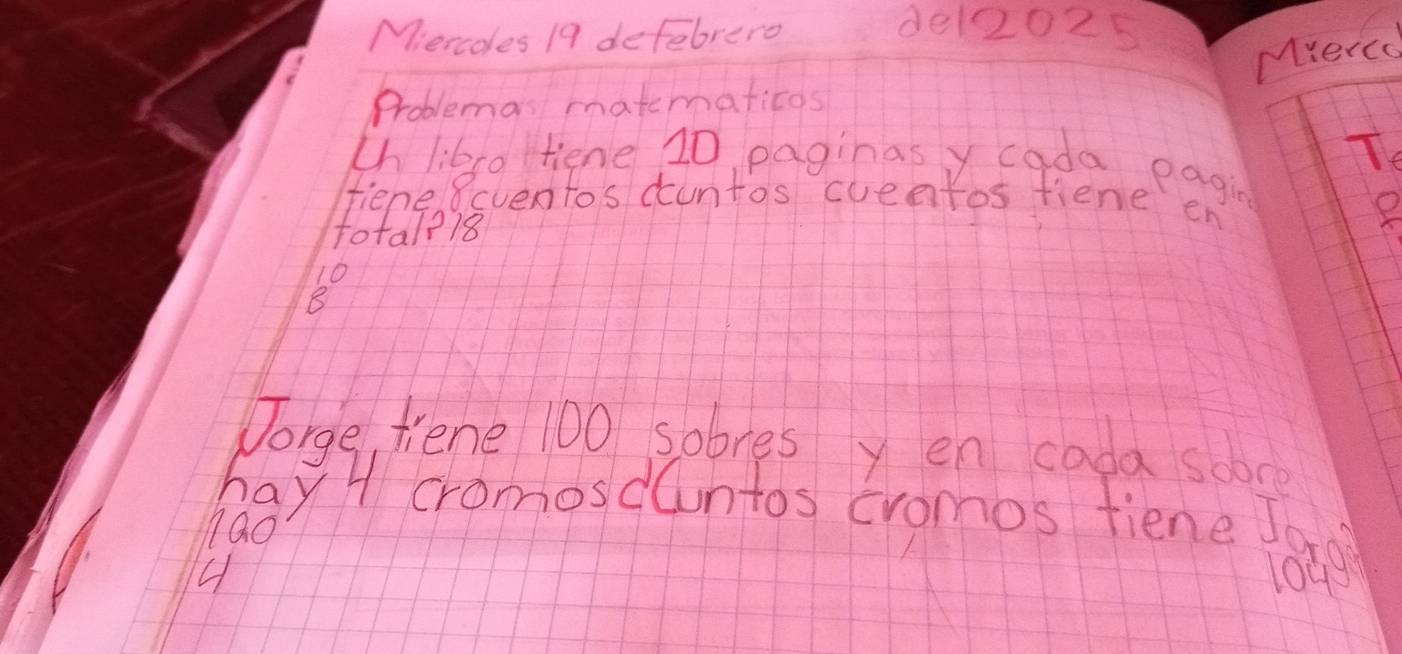 Miercoles 19 de Febrero del 2025
Problemas matematicos
Un libro tiene 10 paginas y cada pagina
tiene 8 cuentos ¿cuntos cuentos tiene en
total? 18
10
8
Jorge, tiene 100 sobres y en cada sobre
hay 4 cromos ¿Cuntos cromos tiene Jorge?
100
4
104
Mierco
Te